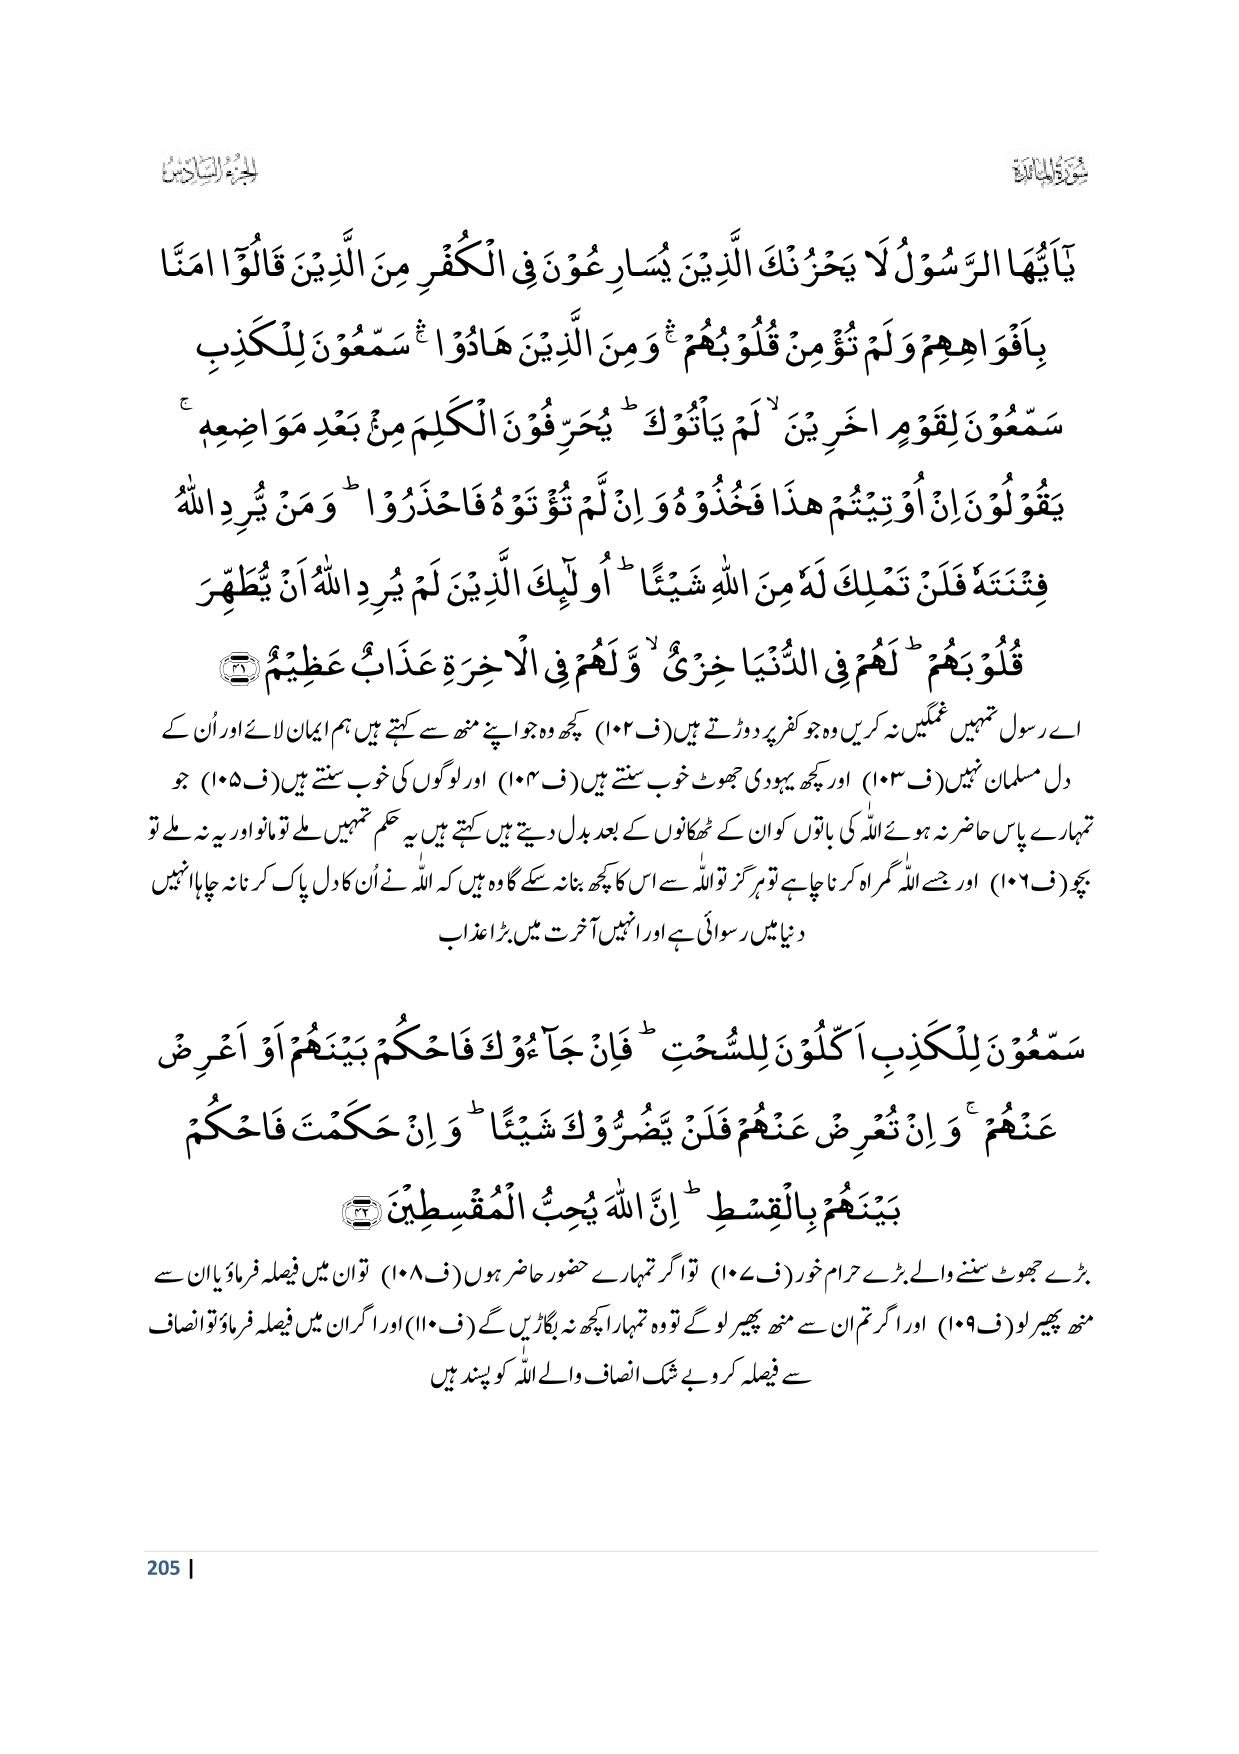 سُوْرَةُ الْمَائِدَة
الجُزْءُ السَّادِسُ
يٰۤاَيُّهَا الرَّسُوْلُ لَا يَحْزُنْكَ الَّذِيْنَ يُسَارِعُوْنَ فِى الْكُفْرِ مِنَ الَّذِيْنَ قَالُوْۤا اٰمَنَّا
بِاَفْوَاهِهِمْ وَلَمْ تُؤْمِنْ قُلُوْبُهُمْ ۛۚ وَمِنَ الَّذِيْنَ هَادُوْا ۛۚ سَمّٰعُوْنَ لِلْكَذِبِ
سَمّٰعُوْنَ لِقَوْمٍ اٰخَرِيْنَ ۙ لَمْ يَاْتُوْكَ ؕ يُحَرِّفُوْنَ الْكَلِمَ مِنْۢ بَعْدِ مَوَاضِعِهٖ ۚ
يَقُوْلُوْنَ اِنْ اُوْتِيْتُمْ هٰذَا فَخُذُوْهُ وَ اِنْ لَّمْ تُؤْتَوْهُ فَاحْذَرُوْا ؕ وَ مَنْ يُّرِدِ اللّٰهُ
فِتْنَتَهٗ فَلَنْ تَمْلِكَ لَهٗ مِنَ اللّٰهِ شَيْـًٔا ؕ اُولٰٓئِكَ الَّذِيْنَ لَمْ يُرِدِ اللّٰهُ اَنْ يُّطَهِّرَ
قُلُوْبَهُمْ ؕ لَهُمْ فِى الدُّنْيَا خِزْىٌ ۙ وَّ لَهُمْ فِى الْاٰخِرَةِ عَذَابٌ عَظِيْمٌ ﴿۴۱﴾
اے رسول تمہیں غمگیں نہ کریں وہ جو کفر پر دوڑتے ہیں (ف۱۰۲) کچھ وہ جو اپنے منھ سے کہتے ہیں ہم ایمان لائے اور اُن کے
دل مسلمان نہیں (ف۱۰۳) اور کچھ یہودی جھوٹ خوب سنتے ہیں (ف۱۰۴) اور لوگوں کی خوب سنتے ہیں (ف۱۰۵) جو
تمہارے پاس حاضر نہ ہوئے اللّٰہ کی باتوں کو ان کے ٹھکانوں کے بعد بدل دیتے ہیں کہتے ہیں یہ حکم تمہیں ملے تو مانو اور یہ نہ ملے تو
بچو (ف۱۰۶) اور جسے اللّٰہ گمراہ کرنا چاہے تو ہرگز تو اللّٰہ سے اس کا کچھ بنا نہ سکے گا وہ ہیں کہ اللّٰہ نے اُن کا دل پاک کرنا نہ چاہا انہیں
دنیا میں رسوائی ہے اور انہیں آخرت میں بڑا عذاب
سَمّٰعُوْنَ لِلْكَذِبِ اَكّٰلُوْنَ لِلسُّحْتِ ؕ فَاِنْ جَآءُوْكَ فَاحْكُمْ بَيْنَهُمْ اَوْ اَعْرِضْ
عَنْهُمْ ۚ وَ اِنْ تُعْرِضْ عَنْهُمْ فَلَنْ يَّضُرُّوْكَ شَيْـًٔا ؕ وَ اِنْ حَكَمْتَ فَاحْكُمْ
بَيْنَهُمْ بِالْقِسْطِ ؕ اِنَّ اللّٰهَ يُحِبُّ الْمُقْسِطِيْنَ ﴿۴۲﴾
بڑے جھوٹ سننے والے بڑے حرام خور (ف۱۰۷) تو اگر تمہارے حضور حاضر ہوں (ف۱۰۸) تو ان میں فیصلہ فرماؤ یا ان سے
منھ پھیر لو (ف۱۰۹) اور اگر تم ان سے منھ پھیر لو گے تو وہ تمہارا کچھ نہ بگاڑیں گے (ف۱۱۰) اور اگر ان میں فیصلہ فرماؤ تو انصاف
سے فیصلہ کرو بے شک انصاف والے اللّٰہ کو پسند ہیں
205 |